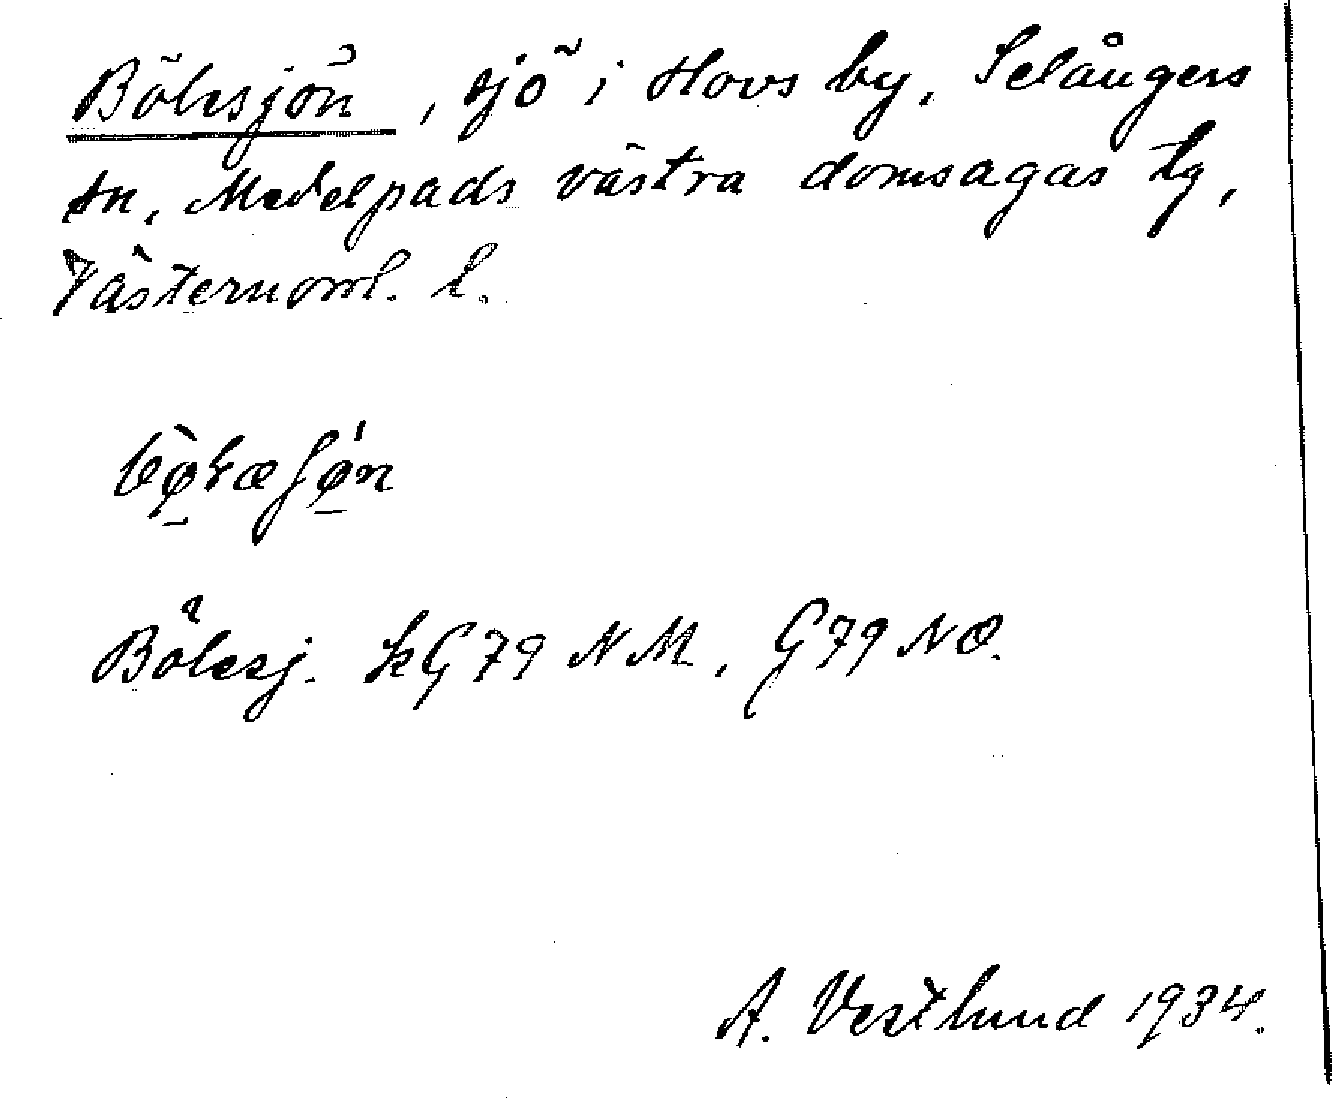 Bölesjön, sjö i Hovs by, Selångers
sn, Medelpads västra domsagas tg,
Västernorrl. l.
Bölesj. kG79 NM, G79 NO.
A. Vestlund 1934.